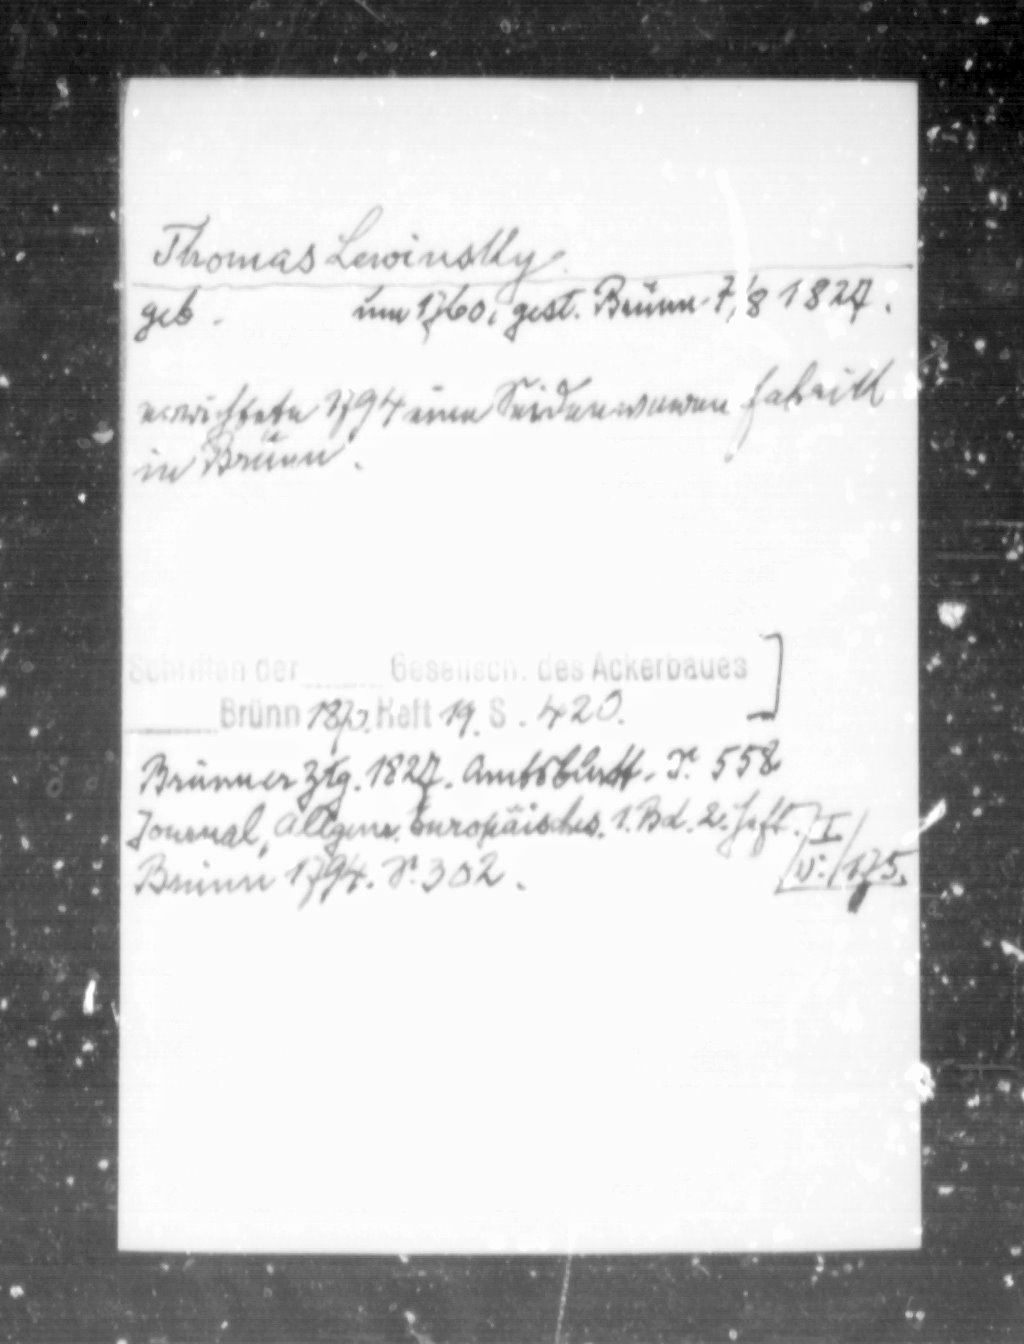 Thomas Lewinsky.
geb. um 1760, gest. Brünn 7/8 1827.
errichtete 1794 eine Seidenwaren fabrik
in Brünn.
Schriften der Gesellsch. des Ackerbaues ]
Brünn Heft 19. S. 420.
Brünner Ztg. 1827. Amtsblatt. S. 558
Journal, Allgem. Europäisches. 1. Bd. 2. Heft.
Brünn 1794. S. 302.
I
175.